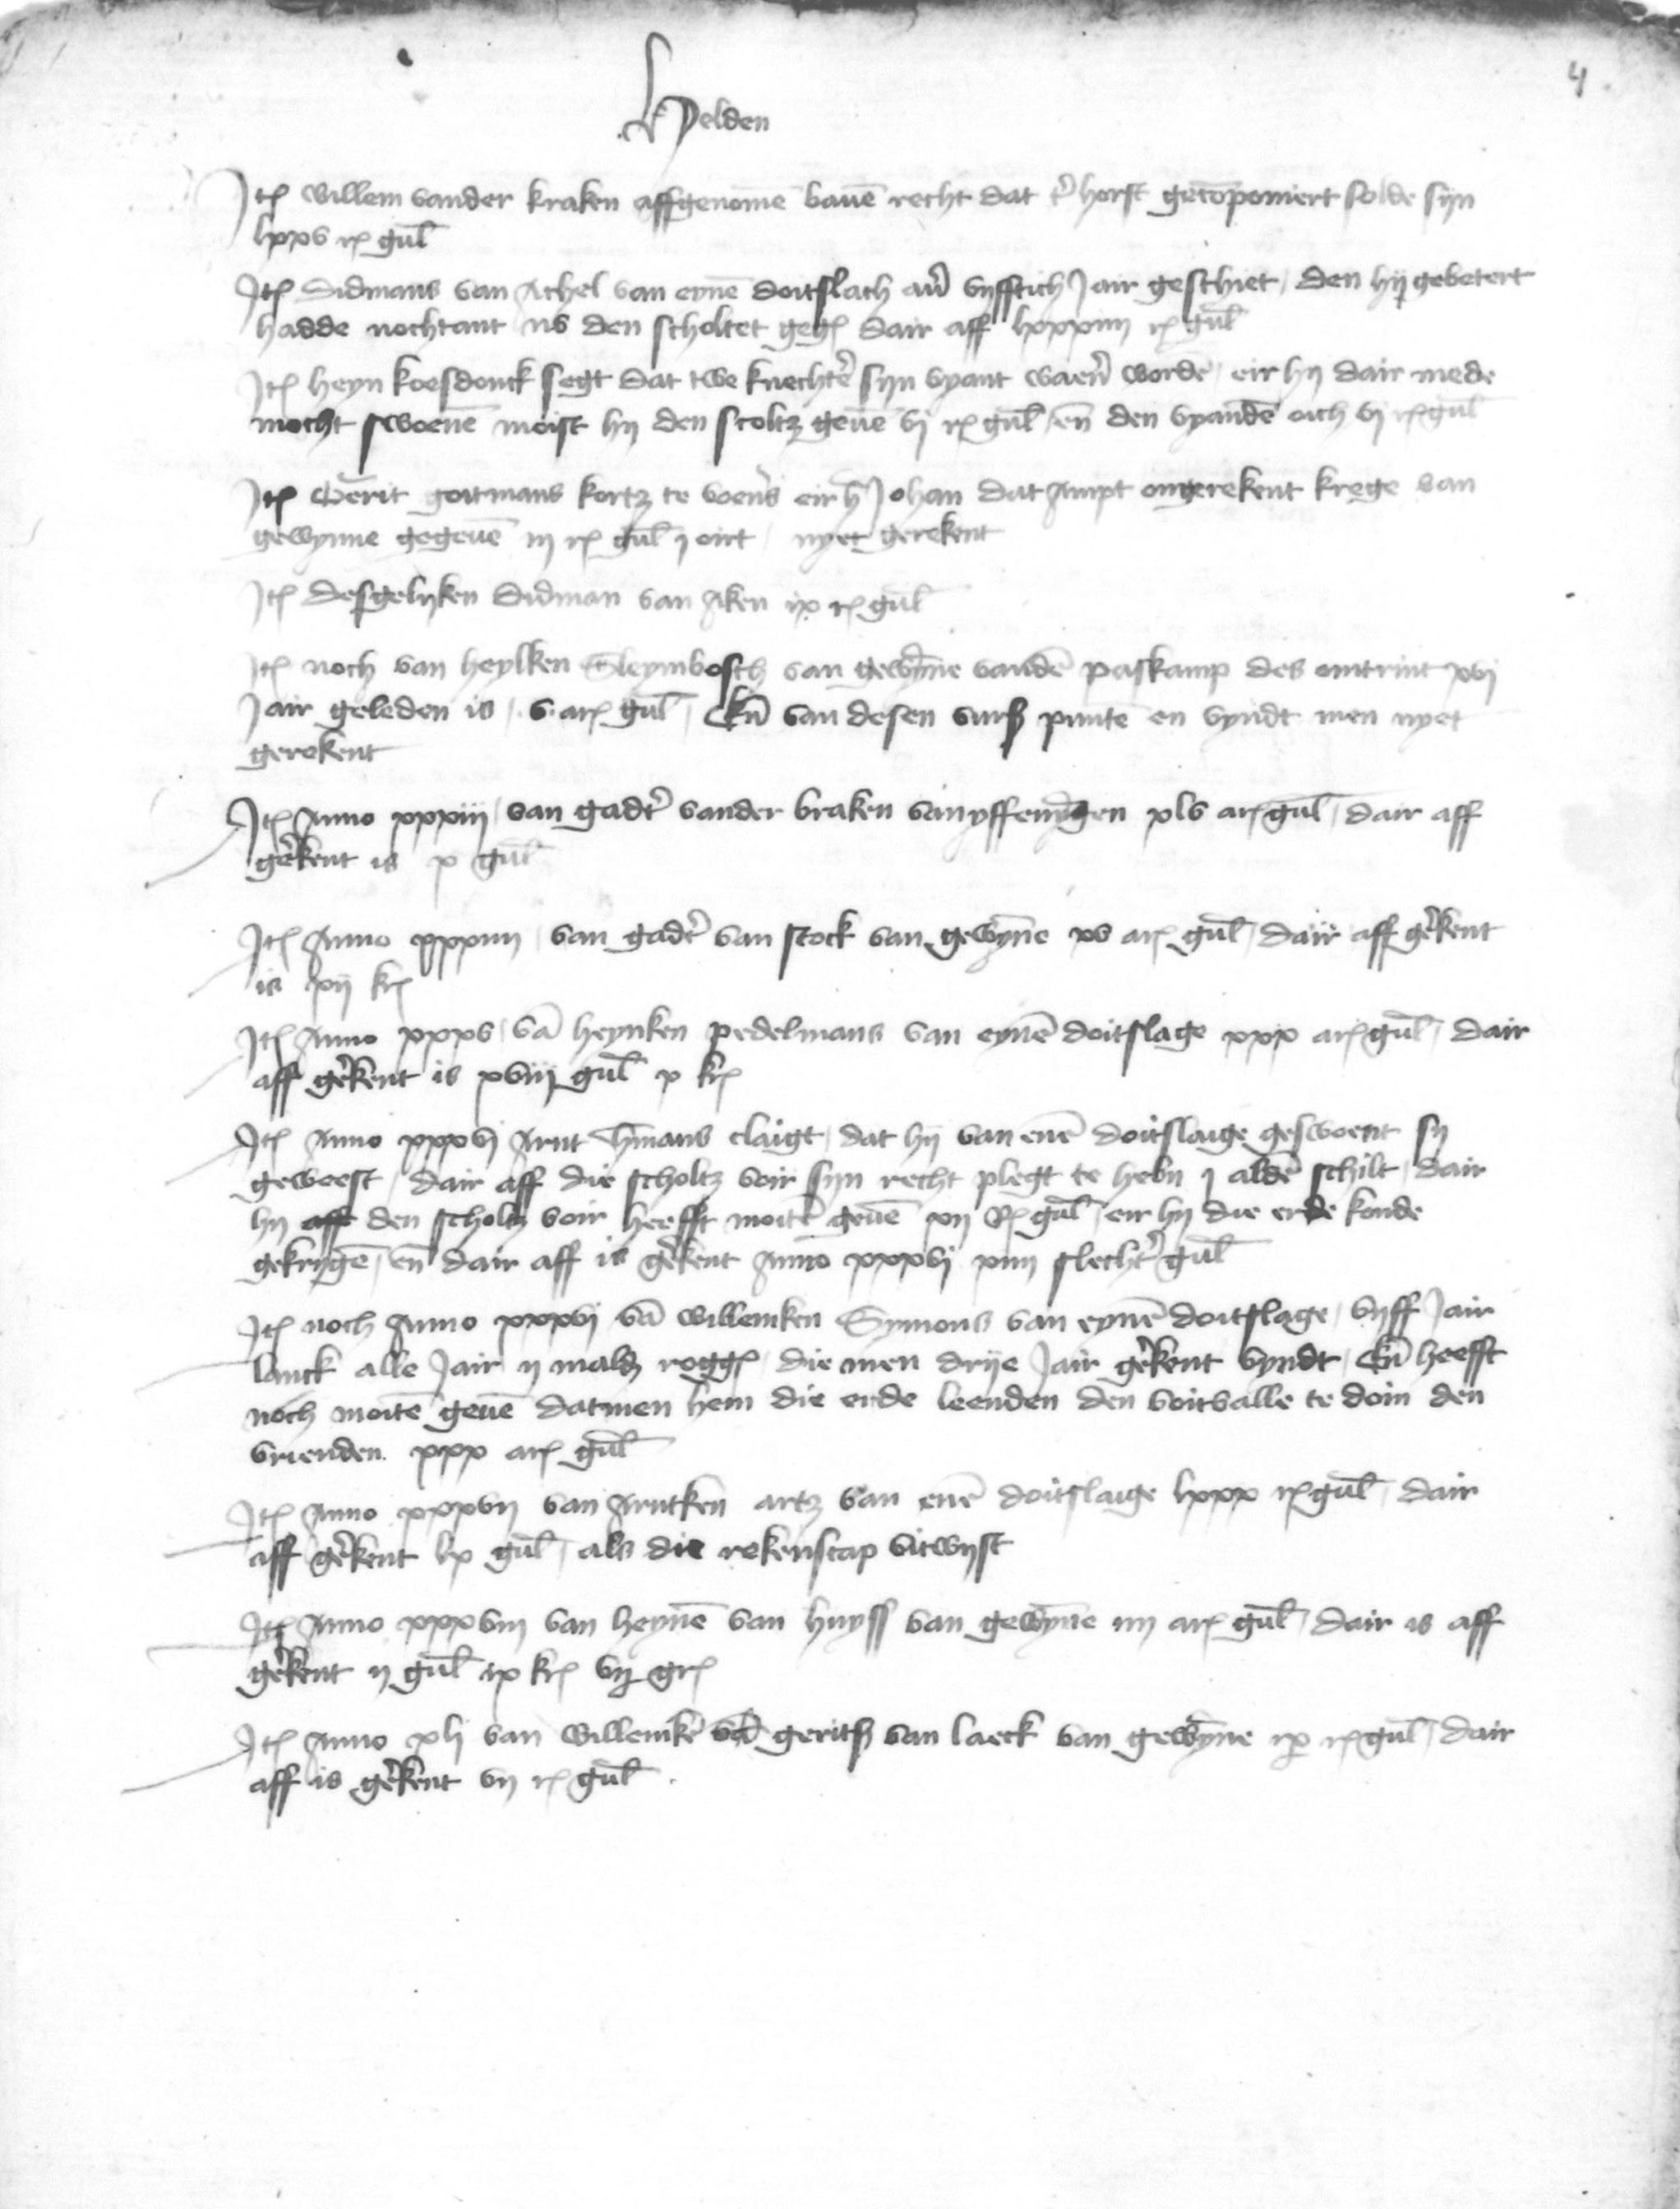 4
Helden
Itē willem vander kraken affgenomē bauē recht dat t' horst gecōponiert solde sijn
lxxv r gul
Itē didmans van Achel van eynē doitslach auer vijfftich Jair geschiet / den hij gebetert
hadde nochtant den scholtet geg dair aff lxxxiiij r gul
Itē heyn koesdonck segt dat twe knechtē sijn vyant waerē wordē / eir hij dair mede
mocht swoenē moist hij den scoltz geuē vj r gul / en̄ den vyandē oich vj r gul
Itē Gerit goitmans kortz te voerēs eir h Johan dat Ampt ongerekent krege van
gewynne gegeuē iij r gul j oirt / nyet gerekent
Itē desgelijken didman van Aken ix r gul
Itē noch van heylken Sleymbosch van gewȳne vandē paskamp des omtrint xvj
Jair geleden is / v ar gul / En̄ van desen vurß puntē en vyndt men nyet
gerekent
Itē Anno xxxiij / van gadt' vander braken van yffenȳgen xlv ar gul / dair aff
gekent is x gul
Itē Anno xxxiiij / van gadt' van stock van gewȳne xv ar gul / dair aff gekent
is xij kr
Itē Anno xxxv / vā heynken pedelmans van eynē doitslage xxx ar gul / dair
aff gekent is xviij gul x kr
Itē Anno xxxvj Arnt h̄mans claigt / dat hij van enē doitslaige geswoent sy
geweest / dair aff die scholtz voir sijn recht plegt te hebn j aldē schilt / dair
hij aff den scholtz voir heefft moitē geuē xij R gul / eir hij die erde konde
gekrijgē / en̄ dair aff is gekent Anno xxxvj xiiij slecht' gul
Itē noch Anno xxxvj vā willemken Symons van eynē doitslage / vijff Jair
lanck alle Jair ij mald rogg / die men drije Jair gekent vyndt / En̄ heefft
noch moitē geuē datmen hem die erde leenden den voitvalle te doin den
vrienden xxx ar gul
Itē Anno xxxvij van Arntken artz van enē doitslaige lxxx r gul / dair
aff gekent lx gul / als die rekenscap vitwijst
Itē Anno xxxviij van heynē van huyss van gewȳne iiij ar gul / dair is aff
gekent ij gul ix kr vij gr
Itē Anno xlj van willemkē geritß van laeck van gewȳne ix r gul / dair
aff is gekent vij r gul